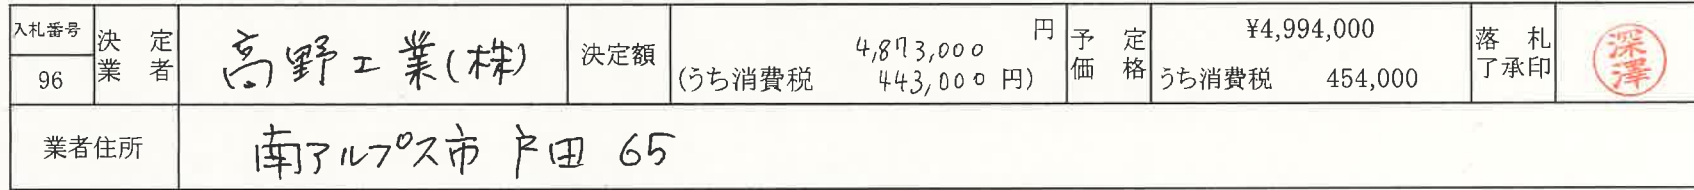 入札番号
96
決定
業者
高野工業(株)
決定額
4,873,000 円
(うち消費税 443,000 円)
予定
価格
¥4,994,000
うち消費税 454,000
落札
了承印
深澤
業者住所
南アルプス市戸田 65